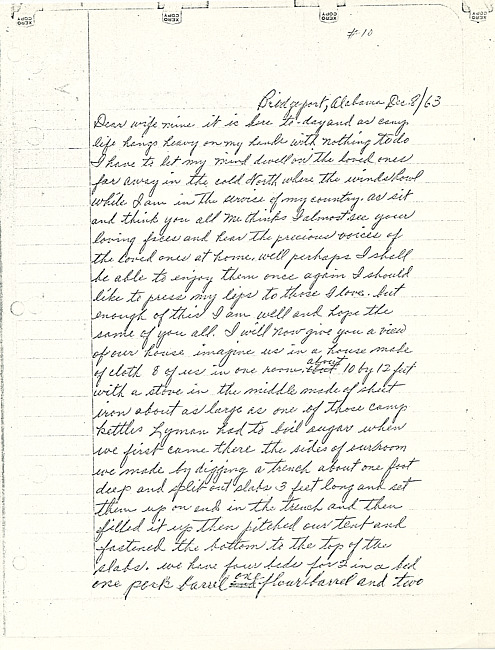 XEROX COPY
XEROX COPY
XEROX COPY
XEROX COPY
# 10
Bridgeport, Alabama Dec. 8/63
Dear wife mine it is here to-day and as camp
life hangs heavy on my hands with nothing to do
I have to let my mind dwell on the loved ones
far away in the cold North where the winds howl
while I am in the service of my country. as sit
and think you all me thinks I almost see your
loving faces and hear the precious voices of
the loved ones at home, well perhaps I shall
be able to enjoy them once again I should
like to press my lips to those I love. but
enough of this I am well and hope the
same of you all. I will now give you a view
of our house imagine us in a house made
of cloth 8 of us in one room about 10 by 12 feet
with a stove in the middle made of sheet
iron about as large as one of those camp
kettles Lyman had to boil sugar when
we first came there the sides of our room
we made by digging a trench about one foot
deep and split out slabs 3 feet long and set
them up on ends in the trench and then
filled it up then pitched our tent and
fastened the bottom to the top of the
slabs. we have four beds for 2 in a bed
one pork barrel one flour barrel and two